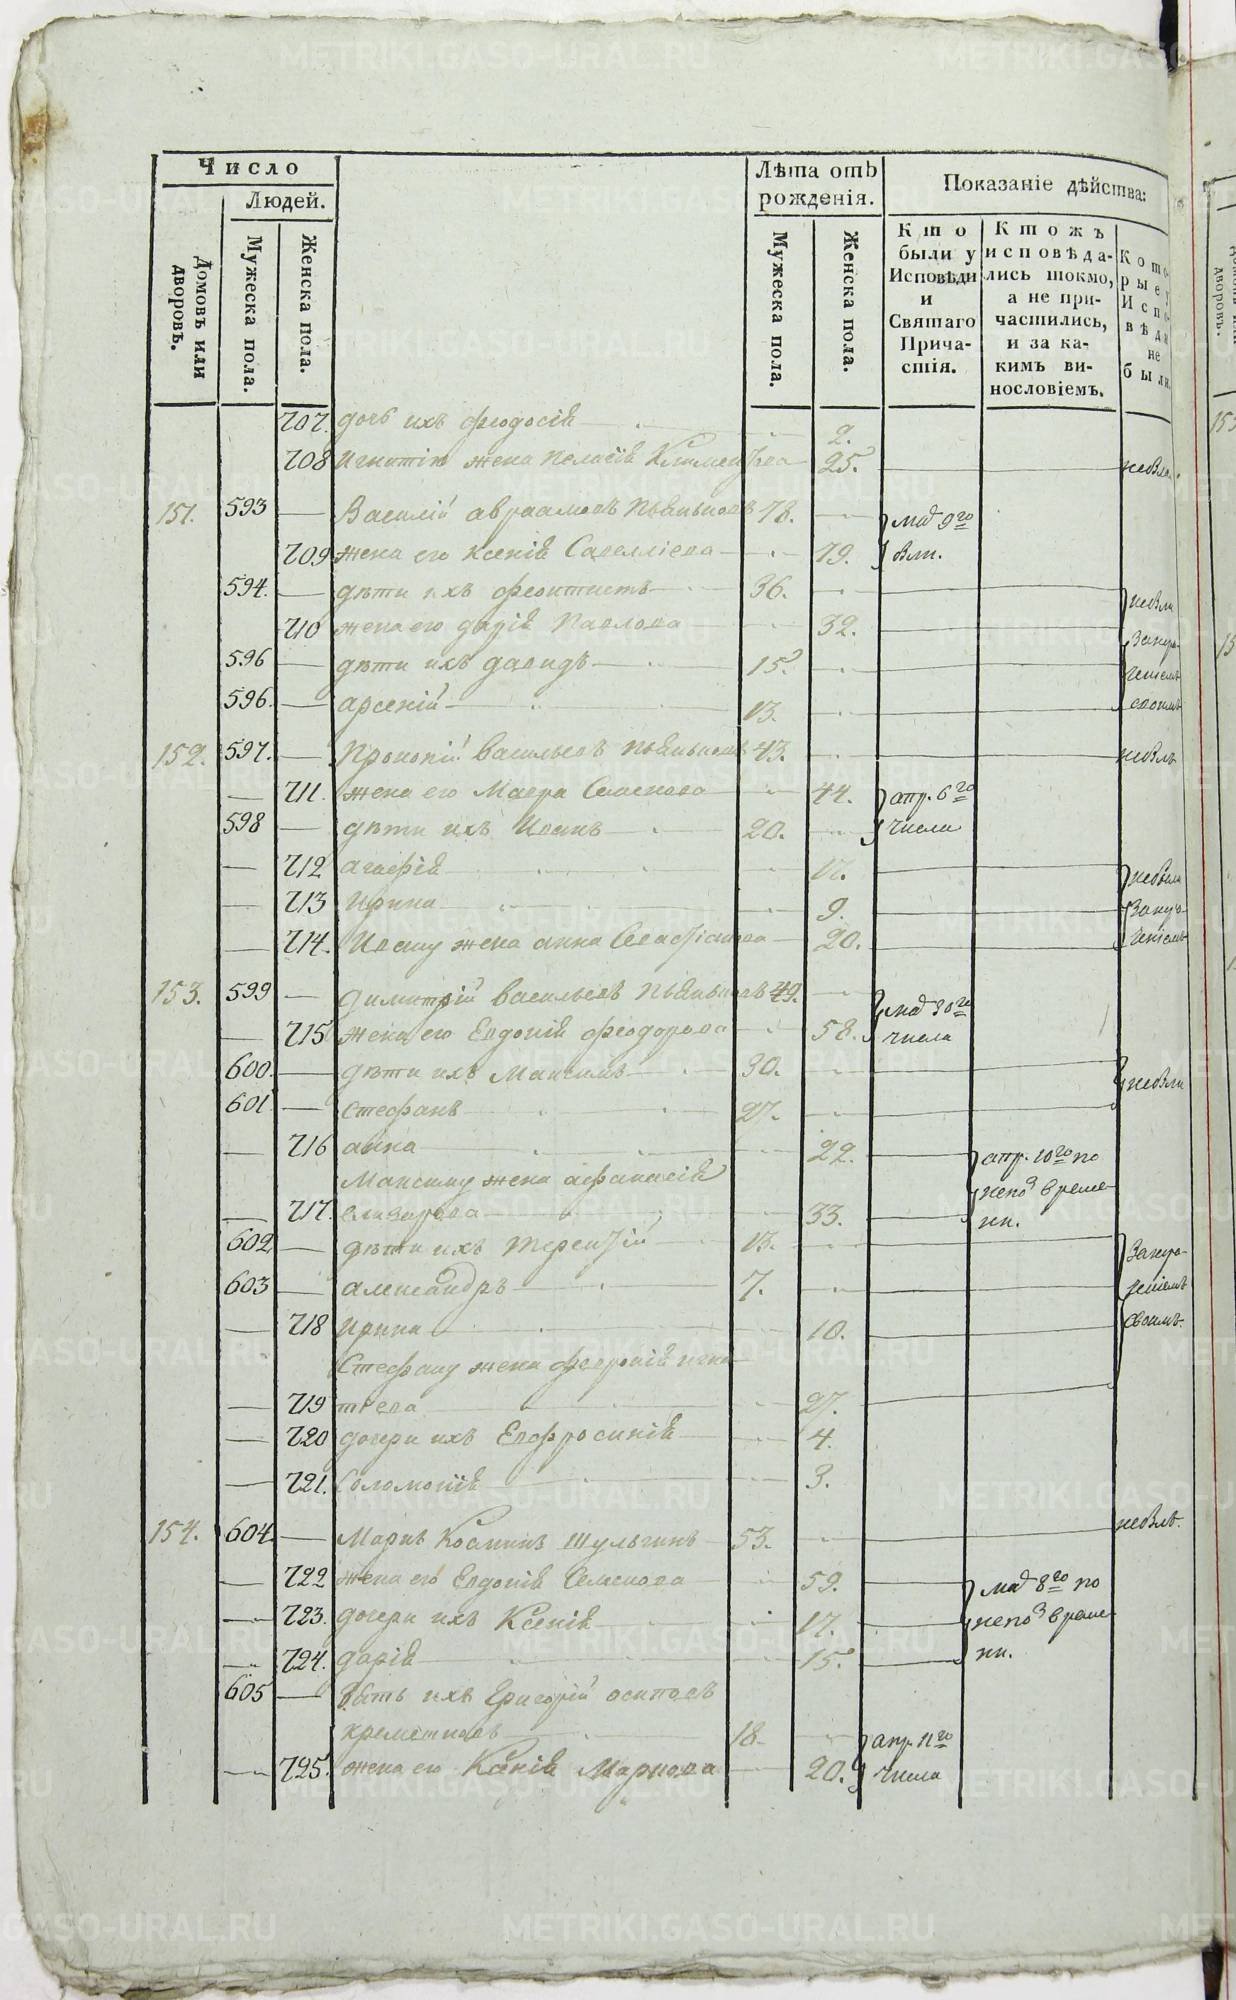 Число
Людей.
Домовъ или дворовъ.
Мужеска пола.
Женска пола.
Лѣта отъ рожденія.
Мужеска пола.
Женска пола.
Показаніе дѣйства:
Кто были у Исповѣди и Святаго Причастія.
Ктожъ исповѣдались токмо, а не причастились, и за какимъ винословіемъ.
Которые у Исповѣди не были.
707. дочь ихъ феодосія 2.
708 Игнатію жена Пелагія Климентова 25. небыла.
151. 593 Василій авраамовъ 78. маія 9го
709 жена его Ксенія Савелліева 79. был.
594. дѣти ихъ феоктистъ 36. небыли
710 жена его дарія Павлова 32.
596 дѣти ихъ давидъ 15.
596. арсеній 13.
152. 597. Прокопій васильевъ 43. небылъ
711. жена его Мавра Семенова 44. апр. 6го
598 дѣти ихъ Иванъ 20. числа
712 агафія 12. небыли
713 Ирина 9.
714. Ивану жена анна 20.
153. 599 димитрій васильевъ 49. маія 30го
715 жена его Евдокія феодорова 58. числа
600. дѣти ихъ Максимъ 30. небыли
601 стефанъ 27.
716 анна 22. апр. 10го по
Максиму жена афанасія непо време-
717. елизарова 33. ни.
602 дѣти ихъ терентій 13.
603 александръ 7.
718 Ирина 10. своимъ.
Стефану жена февронія игна-
719 тіева 27.
720 дочери ихъ Евфросинія 4.
721. Соломонія 3.
154. 604. Маркъ Козминъ Шульгинъ 53. небылъ.
722 жена его Евдокія Семенова 59. маія 8го по
723. дочери ихъ Ксенія 17. непо време-
724. дарія 15. ни.
605 зять ихъ Григорій осиповъ
18. апр. 11го
725. жена его Ксенія Маркова 20. числа
METRIKI.GASO-URAL.RU